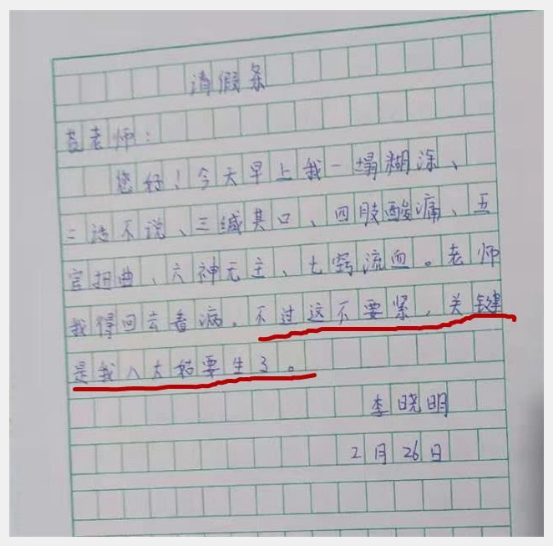 请假条
老师：
您好！今天早上我一塌糊涂、
二话不说、三缄其口、四肢酸痛、五
官扭曲、六神无主、七窍流血。老师
我得回去看病。不过这不要紧，关键
是我八大要生了。
李晓明
2月26日